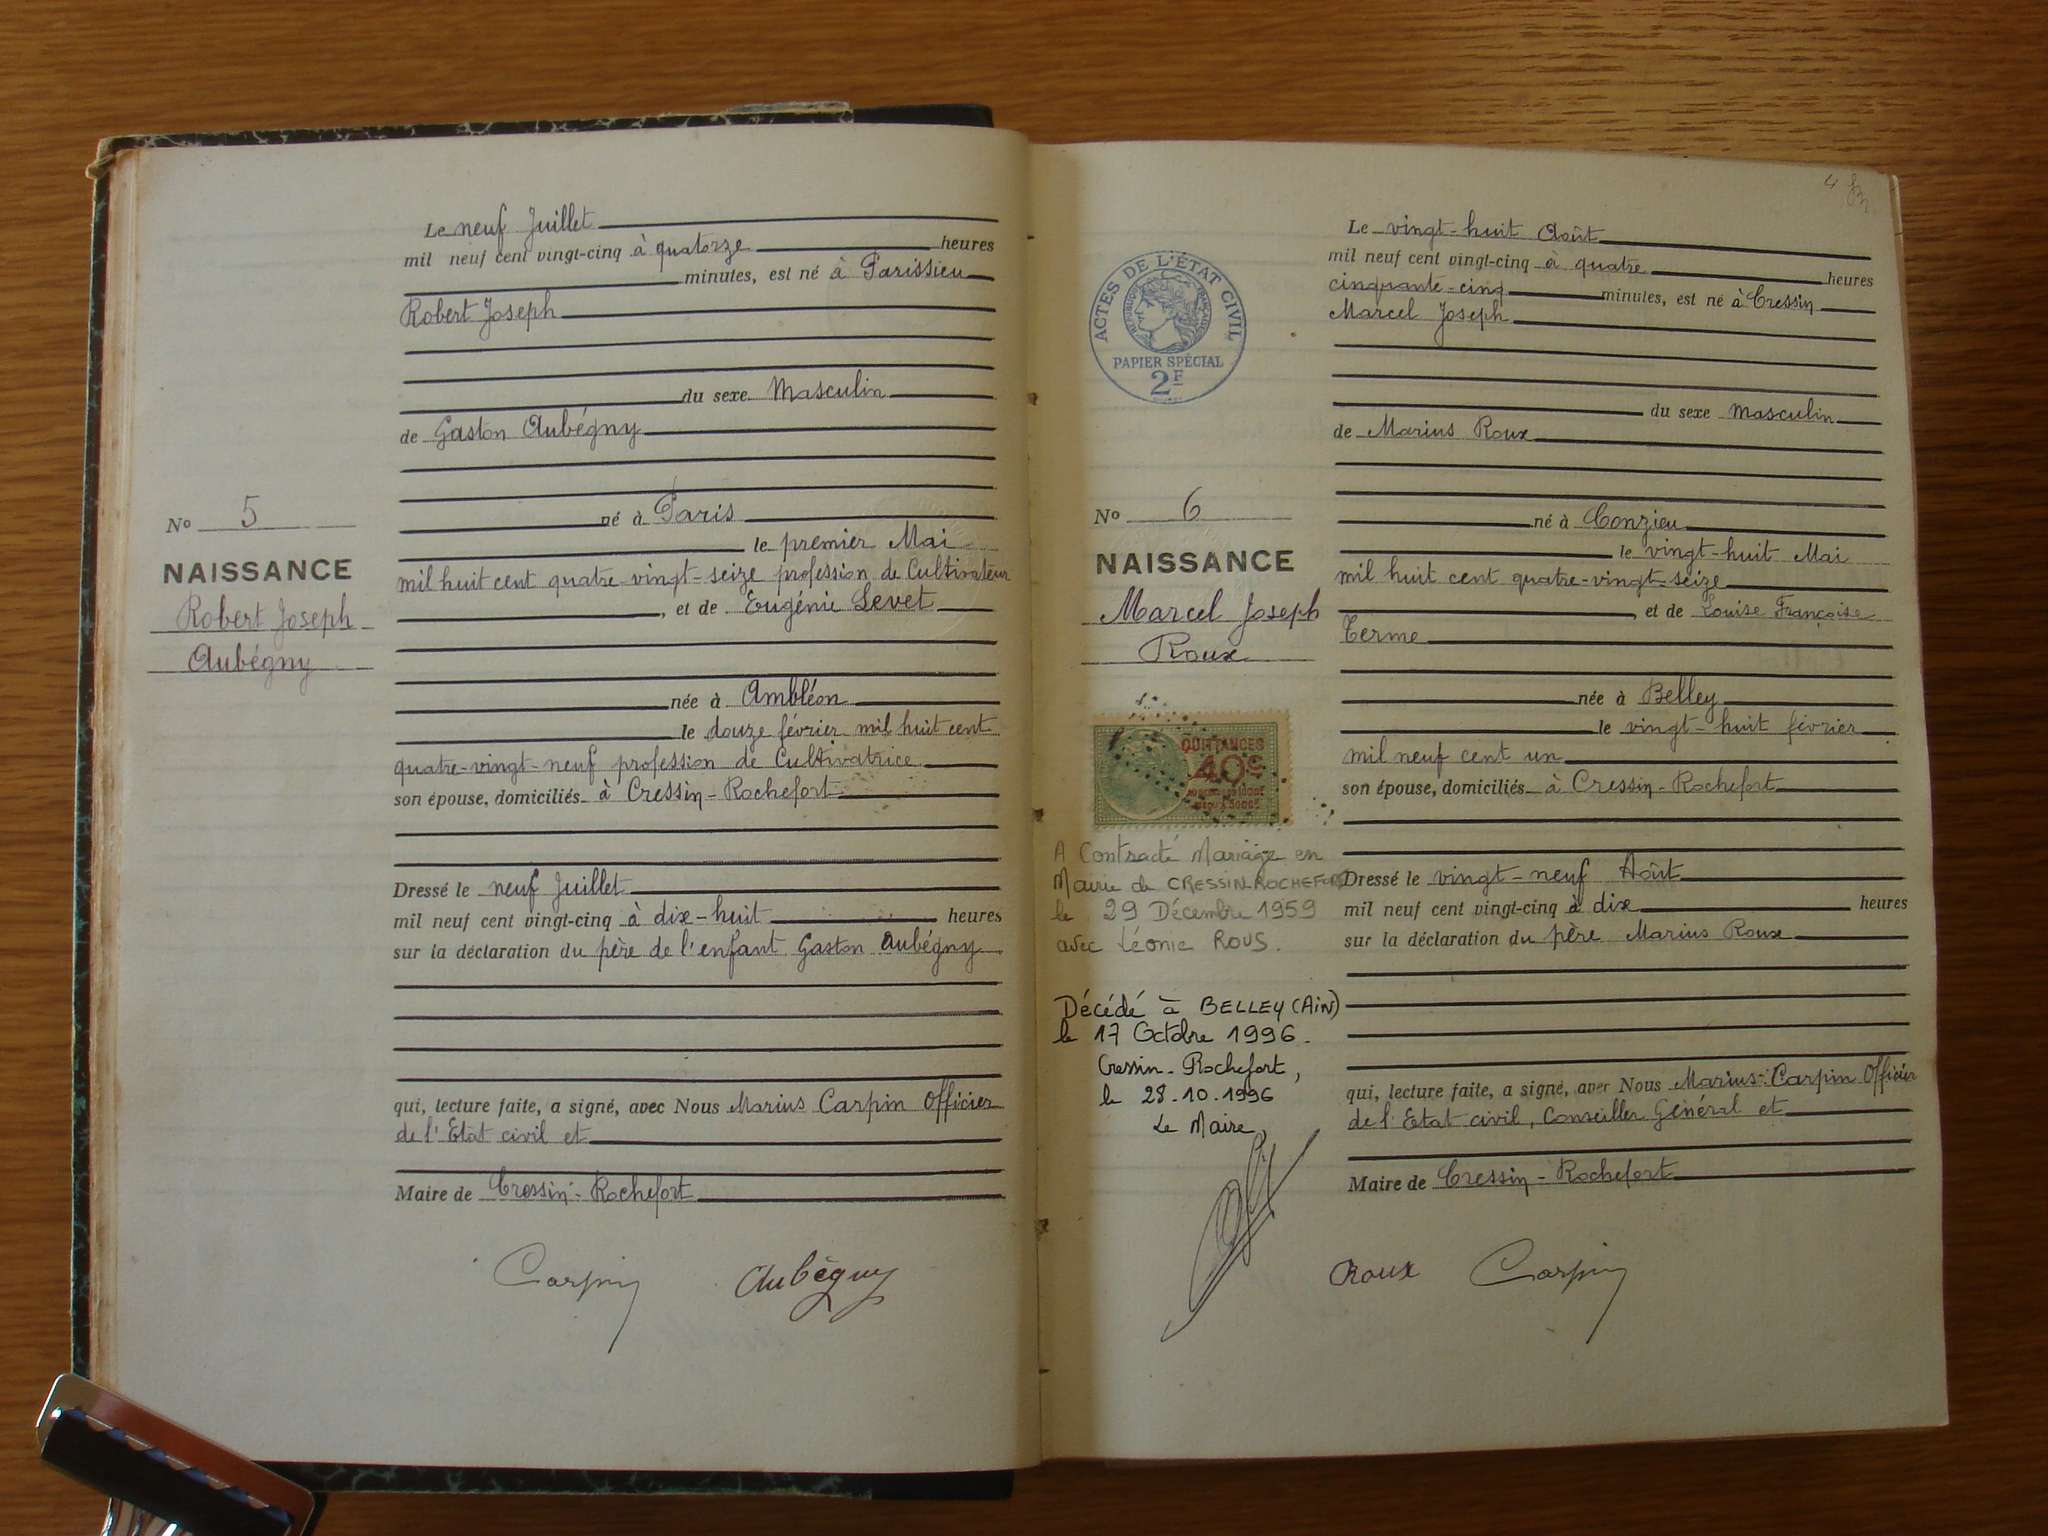 Le neuf Juillet
mil neuf cent vingt-cinq à quatorze heures
minutes, est né à Parissieu
Robert Joseph
du sexe Masculin
de Gaston Aubégny
né à Paris
le premier Mai
mil huit cent quatre-vingt-seize profession de Cultivateur
, et de Eugénie Levet
née à Ambléon
le douze février mil huit cent
quatre-vingt-neuf profession de Cultivatrice
son épouse, domiciliés à Cressin-Rochefort
Dressé le neuf Juillet
mil neuf cent vingt-cinq à dix-huit heures
sur la déclaration du père de l'enfant Gaston Aubégny
qui, lecture faite, a signé, avec Nous Marius Carpin Officier
de l'Etat civil et
Maire de Cressin-Rochefort
Carpin Aubégny
No 5
NAISSANCE
Robert Joseph
Aubégny
4
ACTES DE L'ÉTAT CIVIL
RÉPUBLIQUE FRANÇAISE
PAPIER SPÉCIAL
2F
No 6
NAISSANCE
Marcel Joseph
Roux
QUITTANCES
40c
A Contracté Mariage en
Mairie de CRESSIN-ROCHEFORT
le 29 Décembre 1959
avec Léonie ROUS.
Décédé à BELLEY (AiN)
le 17 Octobre 1996.
Cressin-Rochefort,
le 28.10.1996
Le Maire,
Le vingt-huit Août
mil neuf cent vingt-cinq à quatre heures
cinquante-cinq minutes, est né à Cressin
Marcel Joseph
du sexe masculin
de Marius Roux
né à Conzieu
le vingt-huit Mai
mil huit cent quatre-vingt-seize
, et de Louise Françoise
Terme
née à Belley
le vingt-huit février
mil neuf cent un
son épouse, domiciliés à Cressin-Rochefort
Dressé le vingt-neuf Août
mil neuf cent vingt-cinq à dix heures
sur la déclaration du père Marius Roux
qui, lecture faite, a signé, avec Nous Marius Carpin Officier
de l'Etat civil, Conseiller Général et
Maire de Cressin-Rochefort
Roux Carpin